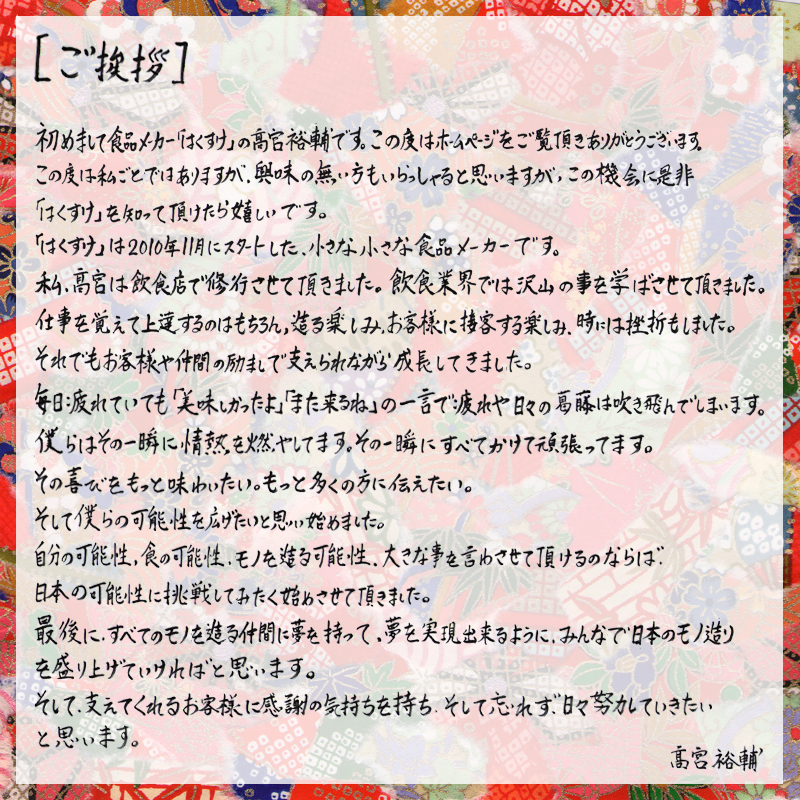 [ご挨拶]
初めまして食品メーカー「はくすけ」の髙宮裕輔です。この度はホームページをご覧頂きありがとうございます。
この度は私ごとではありますが、興味の無い方もいらっしゃると思いますが、この機会に是非
「はくすけ」を知って頂けたら嬉しいです。
「はくすけ」は2010年11月にスタートした、小さな小さな食品メーカーです。
私、髙宮は飲食店で修行させて頂きました。飲食業界では沢山の事を学ばさせて頂きました。
仕事を覚えて上達するのはもちろん、造る楽しみ、お客様に接客する楽しみ、時には挫折もしました。
それでもお客様や仲間の励ましで支えられながら成長してきました。
毎日疲れていても「美味しかったよ」「また来るね」の一言で疲れや日々の葛藤は吹き飛んでしまいます。
僕らはその一瞬に情熱を燃やしてます。その一瞬にすべてかけて頑張ってます。
その喜びをもっと味わいたい。もっと多くの方に伝えたい。
そして僕らの可能性を広げたいと思い始めました。
自分の可能性、食の可能性、モノを造る可能性、大きな事を言わさせて頂けるのならば
日本の可能性に挑戦してみたく始めさせて頂きました。
最後に、すべてのモノを造る仲間に夢を持って、夢を実現出来るように、みんなで日本のモノ造り
を盛り上げていければと思います。
そして、支えてくれるお客様に感謝の気持ちを持ち、そして忘れず、日々努力していきたい
と思います。
髙宮裕輔